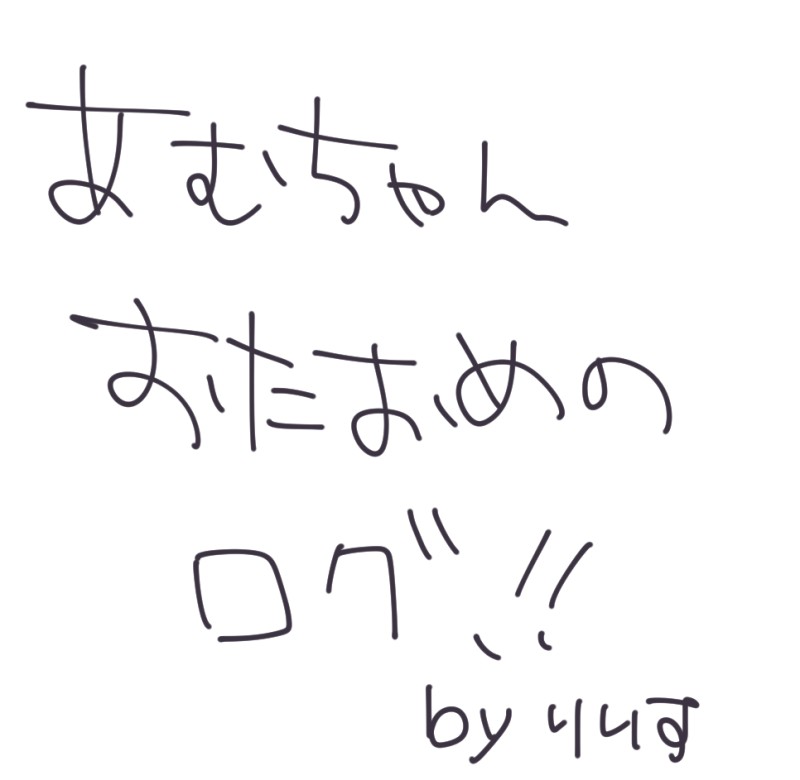 あむちゃん
おたおめの
ログ!!
by りりす